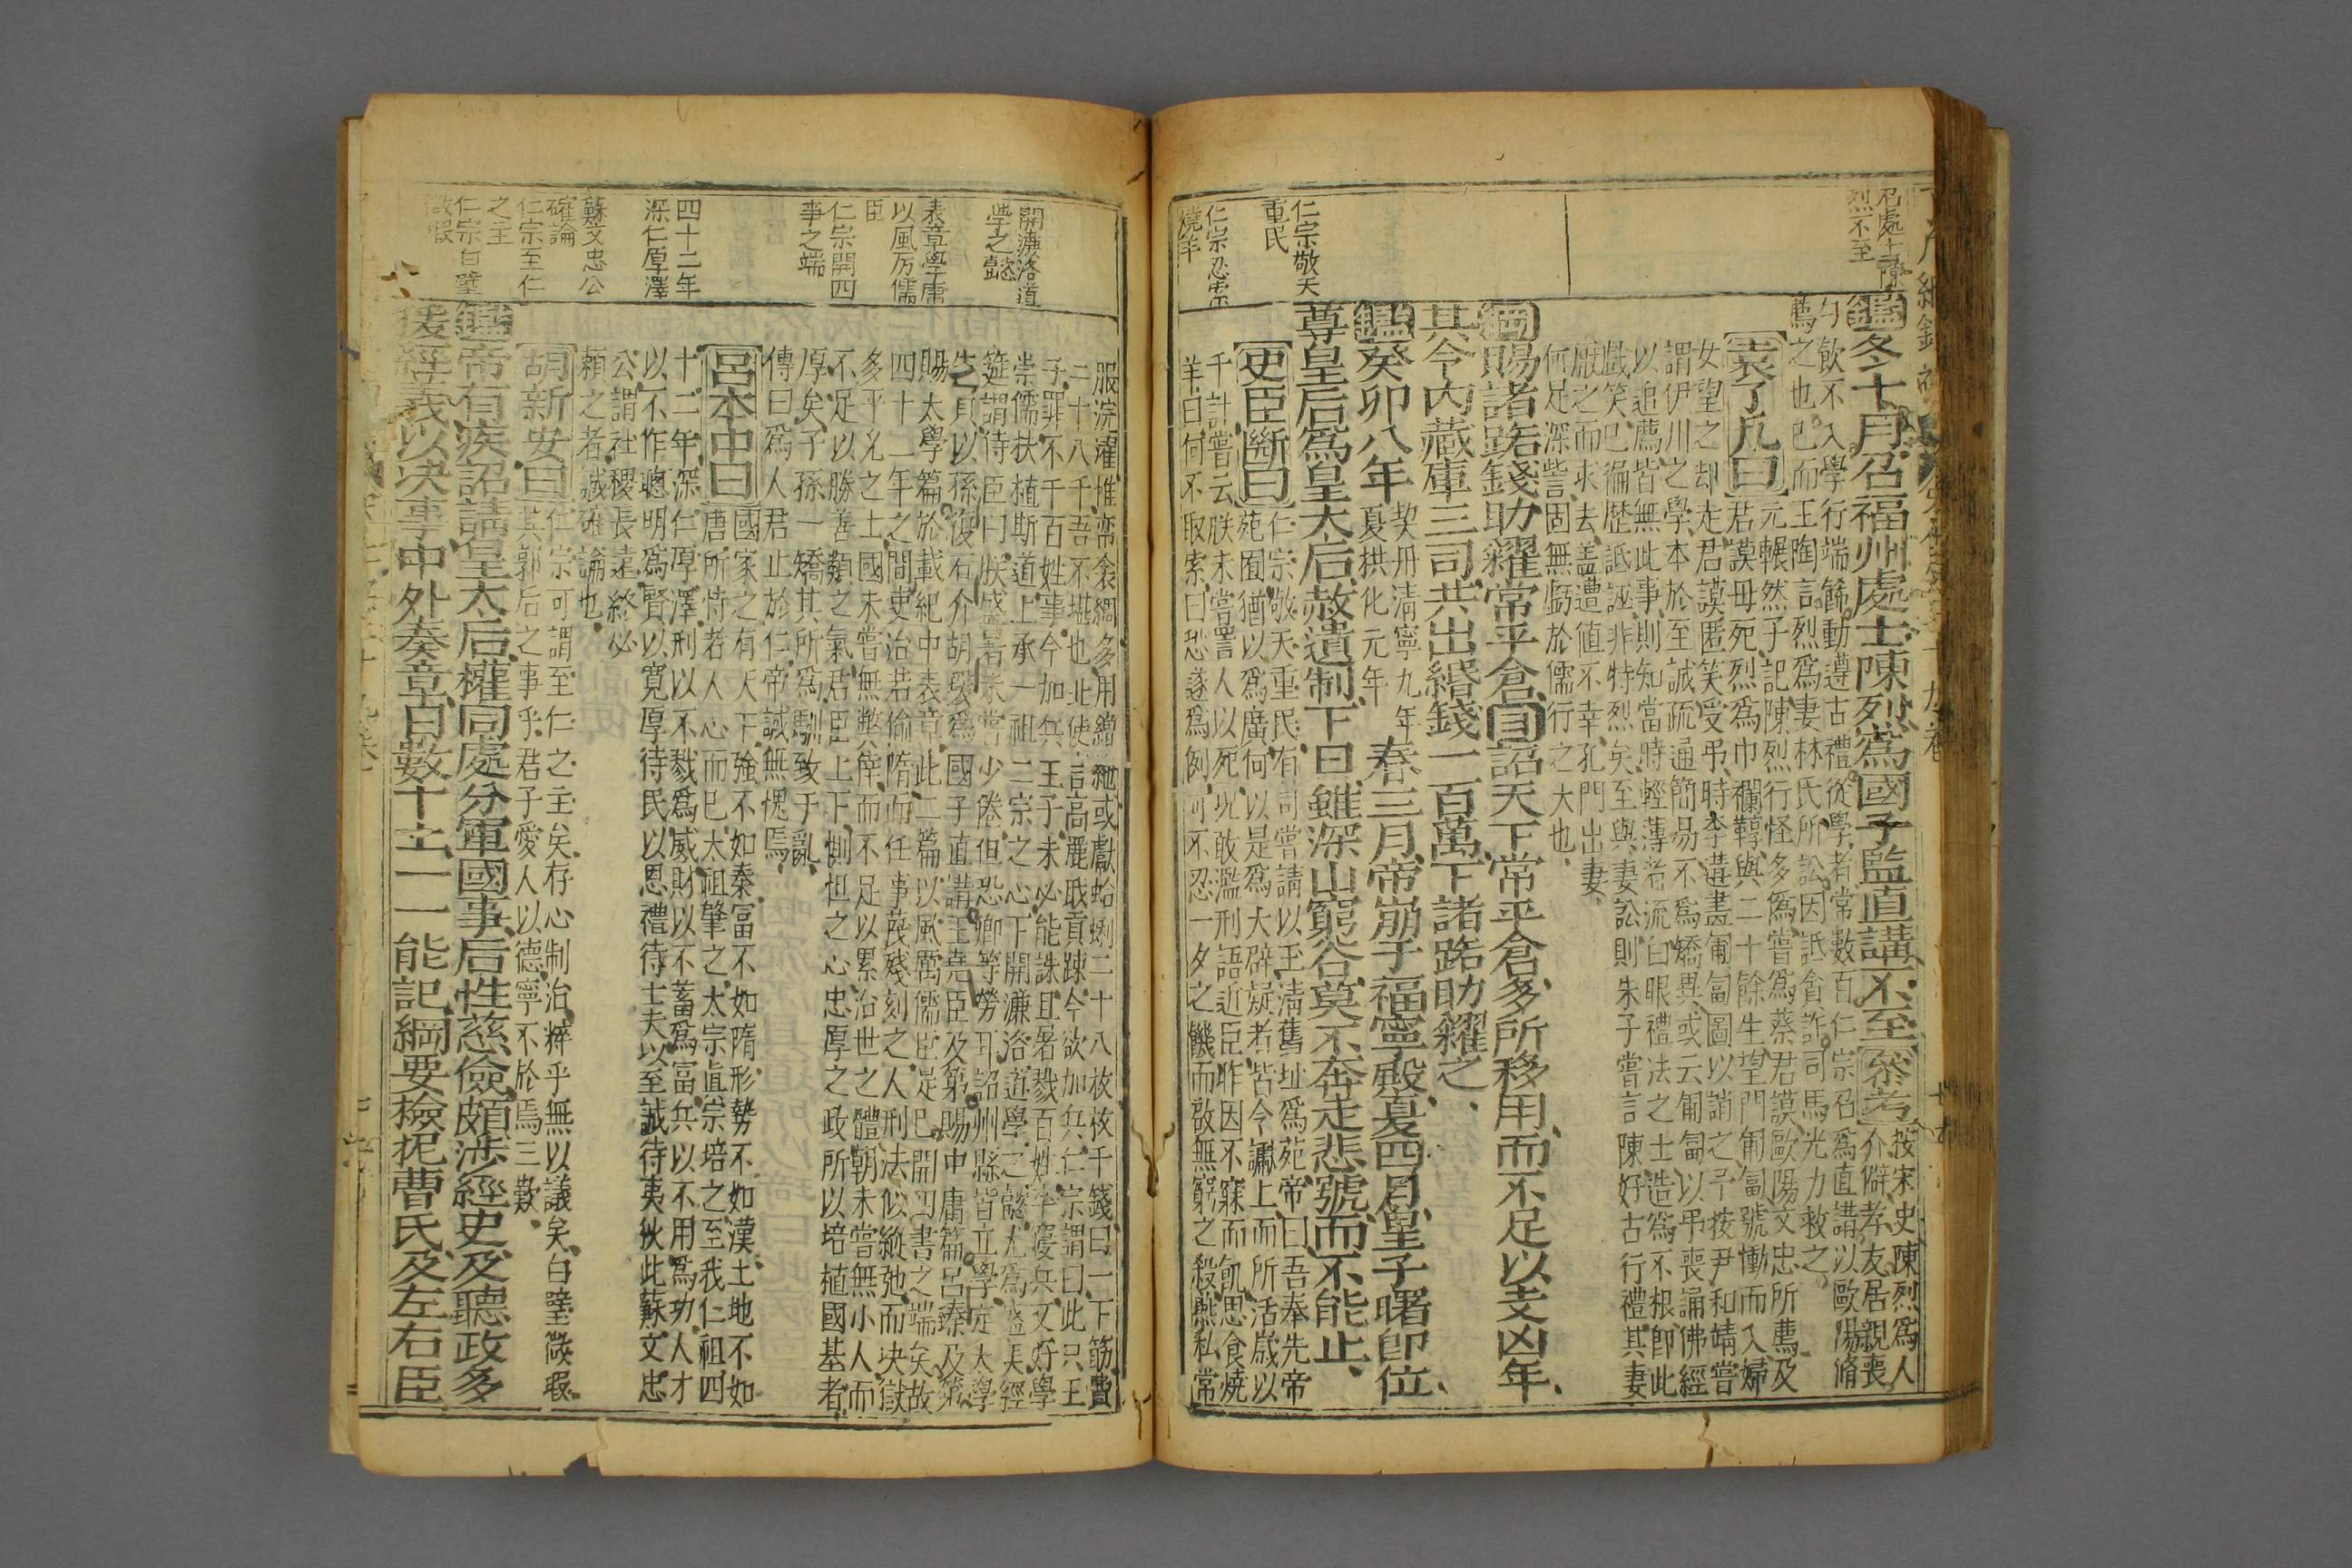 召處士陳
烈不至
鑑冬十月召福州處士陳烈爲國子監直講不至
參考
按宋史陳烈爲人
介僻孝友居親喪
勺飲不入學行端飾動遵古禮從學者常數百仁宗召爲直講以歐陽脩
薦之也已而王陶言烈爲妻林氏所訟因詆貪詐司馬光力救之
袁了凡曰
元輾然子記陳烈行怪多僞嘗爲蔡君謨歐陽文忠所薦及
君謨母死烈爲巾襴鞟與二十餘生望門匍匐號慟而入婦
女望之却走君謨匿笑受弔時李遘畫匍匐圖以誚之予按尹和靖嘗
謂伊川之學本於至誠疏通簡易不爲矯異或云匍匐以弔喪誦佛經
以追薦皆無此事則知當時輕薄者流白眼禮法之士造爲不根卽此
戲笑已徧歷詆誣非特烈矣至與妻訟則朱子嘗言陳好古行禮其妻
厭之而求去盖遭値不幸孔門出妻
何足深訾固無虧於儒行之大也
綱賜諸路錢助糴常平倉目詔天下常平倉多所移用而不足以支凶年
其令內藏庫三司共出緡錢一百萬下諸路助糴之
鑑癸卯八年
契丹淸寧九年
夏拱化元年
春三月帝崩于福寧殿夏四月皇子曙卽位
尊皇后爲皇太后赦遺制下日雖深山窮谷莫不奔走悲號而不能止
仁宗敬天
重民
史臣斷曰
仁宗敬天重民有司嘗請以玉淸舊址爲苑帝曰吾奉先帝
苑囿猶以爲廣何以是爲大辟疑者皆令讞上而所活歲以
仁宗忍飢
燒羊
千計嘗云朕未嘗詈人以死况敢濫刑語近臣昨因不寐而飢思食燒
羊曰何不取索曰恐遂爲例可不忍一夕之饑而啟無窮之殺燕私常
服浣濯帷帟衾裯多用繒絁或獻蛤蜊二十八枚枚千錢曰一下筯費
二十八千吾不堪也此使言高麗職貢踈今欲加兵仁宗謂曰此只王
子罪不干百姓事今加兵王子未必能誅且屠戮百姓卒寢兵又好學
開濂洛道
學之懿
崇儒扶植斯道上承一祖二宗之心下開濂洛道學之懿尤爲盛美經
筵謂侍臣曰朕盛暑未嘗少倦但恐卿等勞耳詔州縣皆立學定太學
生員以孫復石介胡瑗爲國子直講王堯臣及第賜中庸篇呂臻及第
表章學庸
以風厉儒
臣
賜太學篇於載紀中表章此二篇以風厲儒臣是已開四書之端矣故
四十一年之間吏治若偷隋而任事蔑殘刻之人刑法似縱弛而决獄
仁宗開四
事之端
多平允之士國未嘗無弊倖而不足以累治世之體朝未嘗無小人而
不足以勝善類之氣君臣上下惻怛之心忠厚之政所以培植國基者
厚矣子孫一矯其所爲馴致于亂
傳曰爲人君止於仁帝誠無愧焉
呂本中曰
國家之有天下強不如秦冨不如隋形勢不如漢土地不如
唐所恃者人心而已太祖肇之太宗眞宗培之至我仁祖四
四十二年
深仁厚澤
十二年深仁厚澤刑以不戮爲威財以不蓄爲富兵以不用爲功人才
以不作聰明爲賢以寬厚待民以恩禮待士夫以至誠待夷狄此蘇文忠
蘇文忠公
確論
公謂社稷長遠終必
賴之者誠確論也
仁宗至仁
之主
仁宗白璧
微瑕
胡新安曰
仁宗可謂至仁之主矣存心制治粹乎無以議矣白璧微瑕
其郭后之事乎君子愛人以德寧不於焉三歎
鑑帝有疾詔請皇太后權同處分軍國事后性慈儉頗涉經史及聽政多
援經義以决事中外奏章日數十上一一能記綱要撿抳曹氏及左右臣